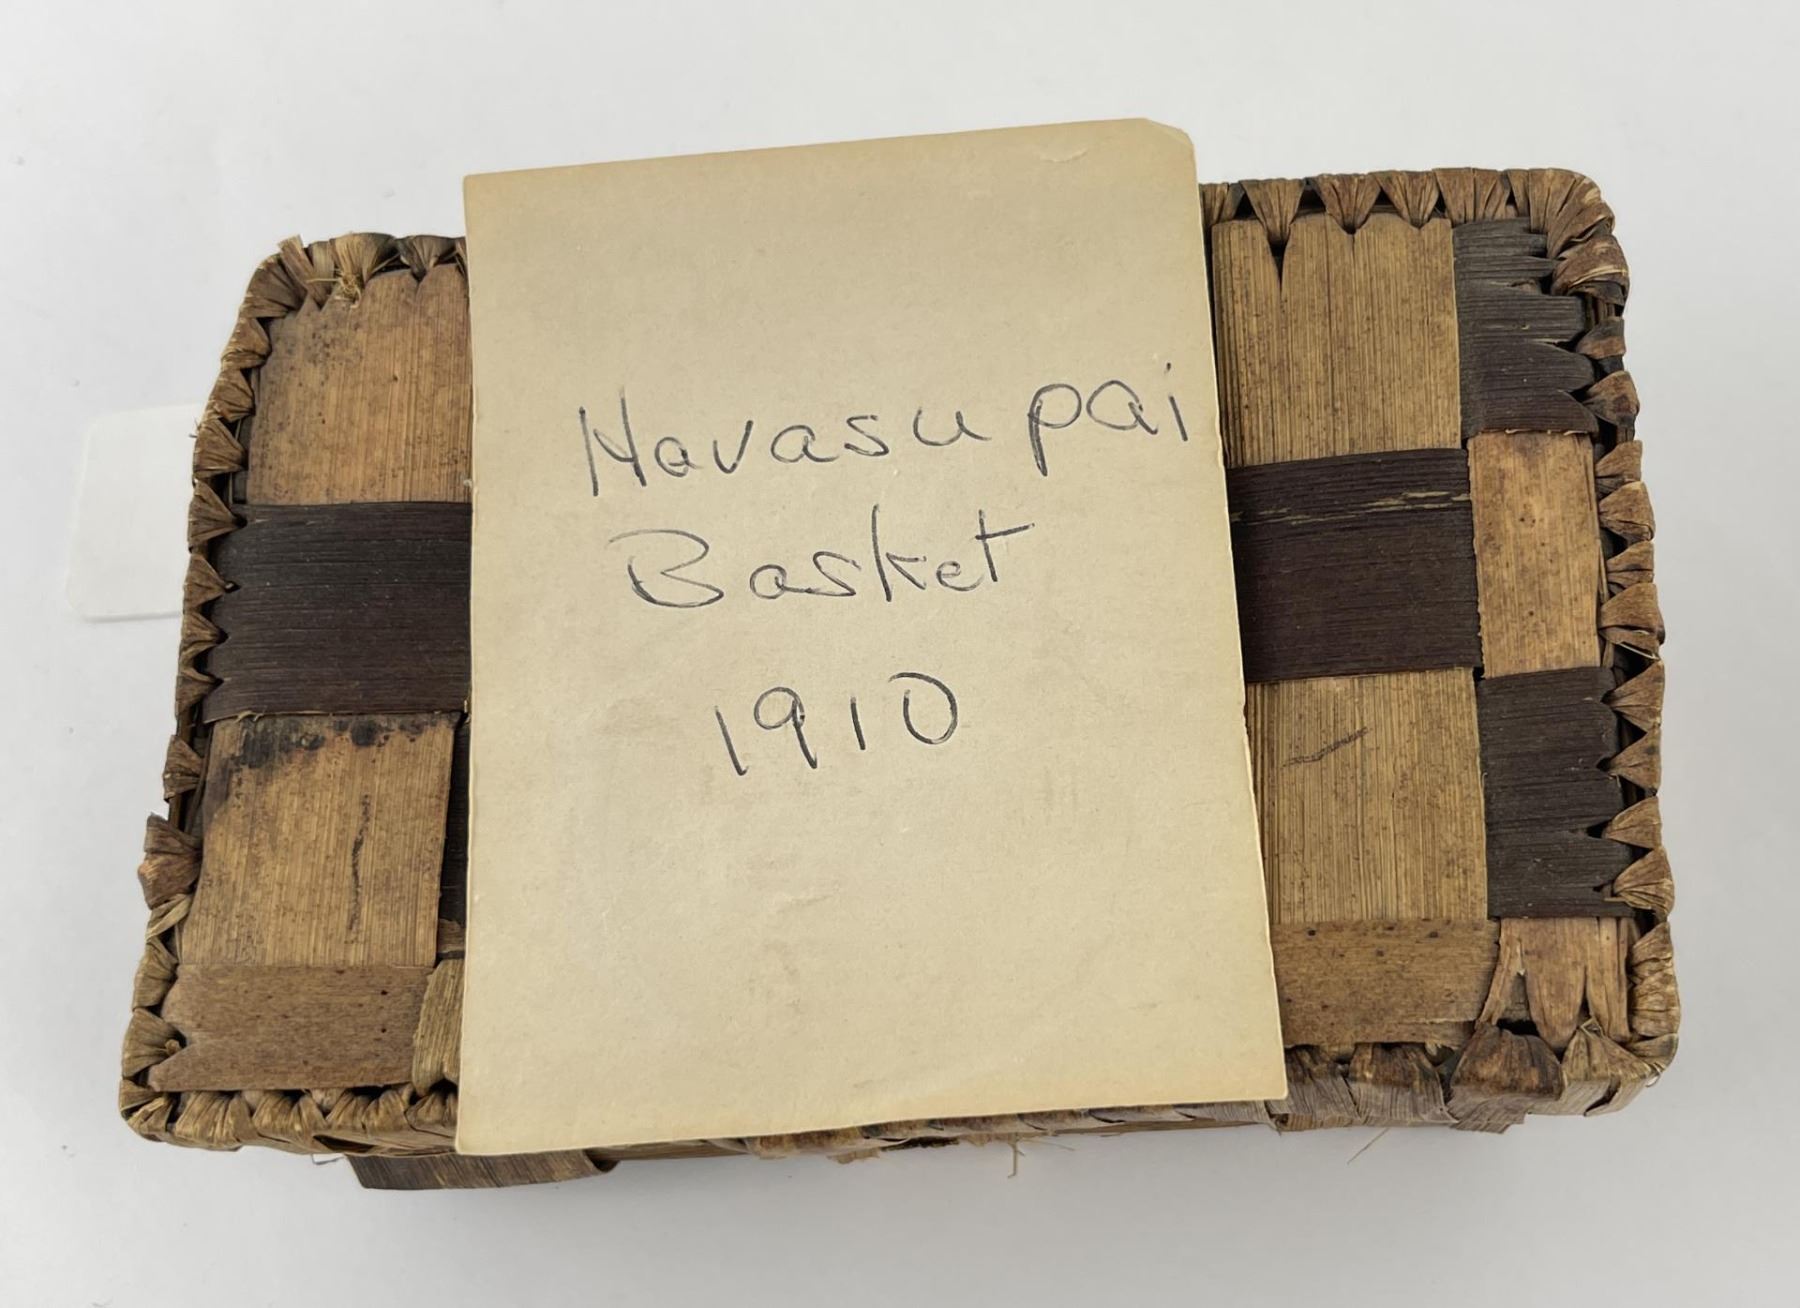 Havasupai
Basket
1910